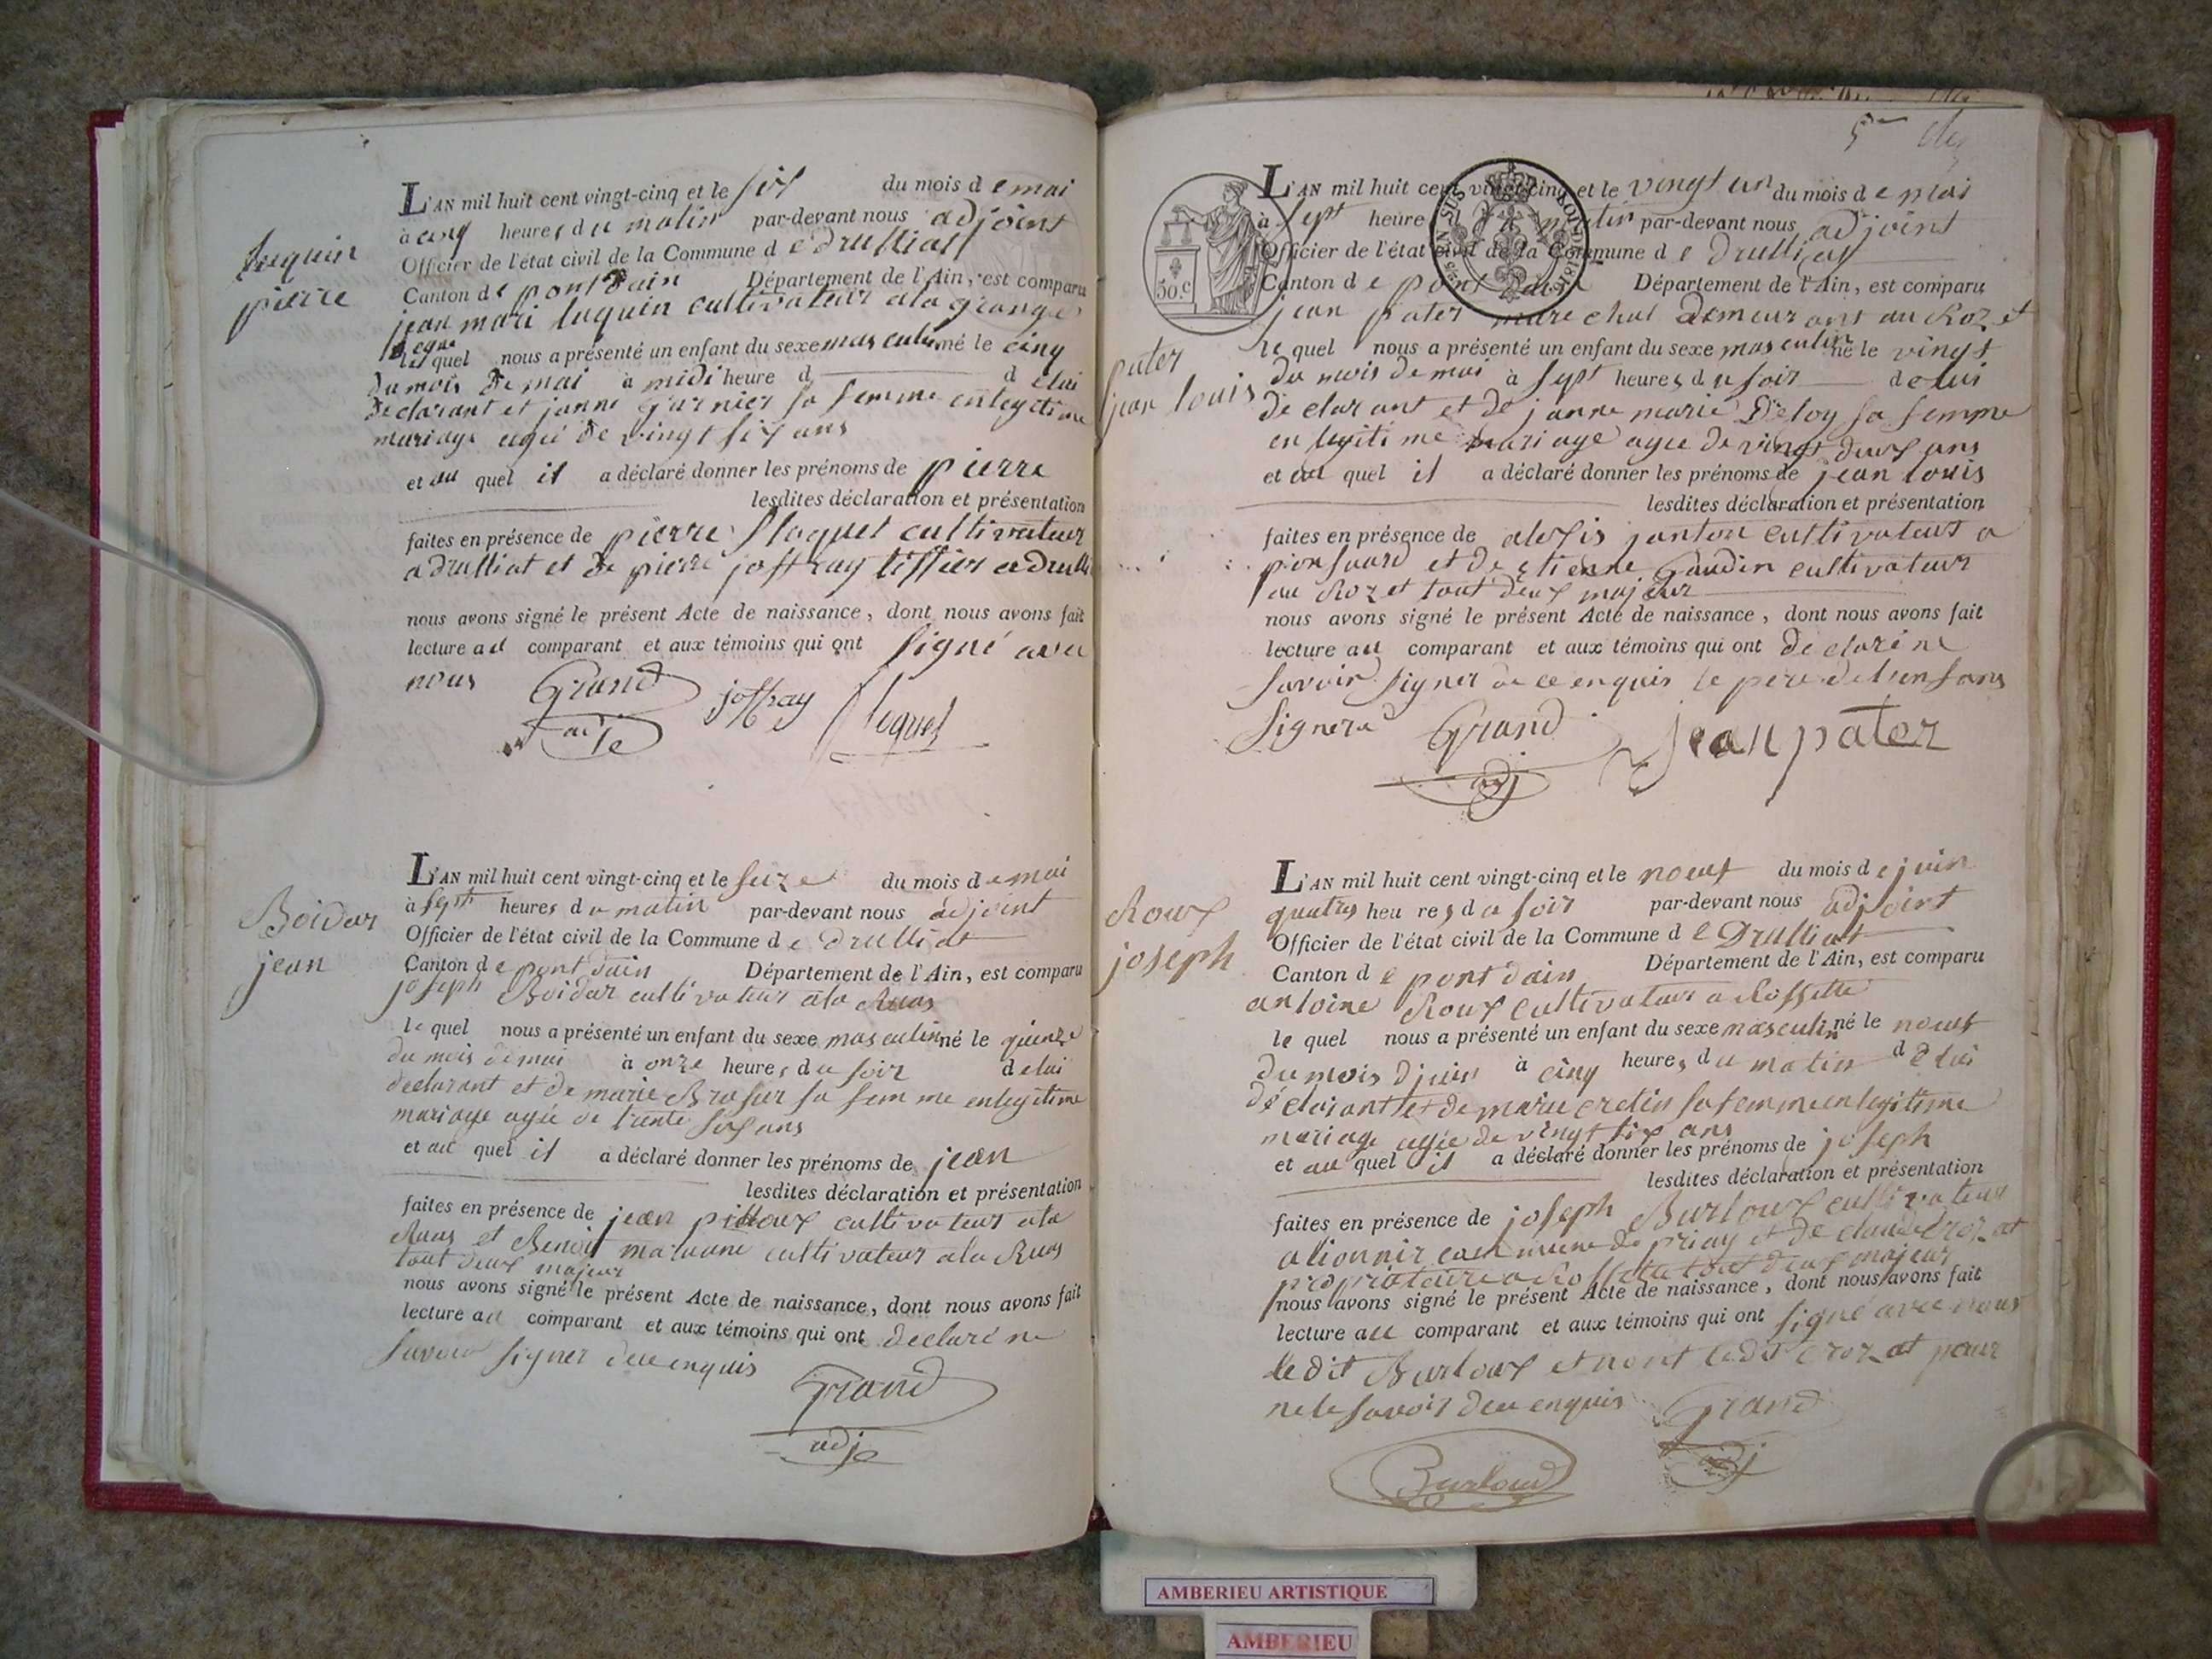 luquin
pierre
L'AN mil huit cent vingt-cinq et le six du mois d e mai
à cinq heures du matin par-devant nous adjoint
Officier de l'état civil de la Commune d e druilliat
Canton de pont dain Département de l'Ain, est comparu
jean mari luquin cultivateur a la grange
lequel nous a présenté un enfant du sexe masculin né le cinq
du mois de mai à midi heure d d e lui
declarant et janne garnier sa femme en legitime
mariage agée de vingt six ans
et au quel il a déclaré donner les prénoms de pierre
lesdites déclaration et présentation
faites en présence de pierre sloquet cultivateur
a druilliat et de pierre joffray tissier a druilli
nous avons signé le présent Acte de naissance, dont nous avons fait
lecture au comparant et aux témoins qui ont signé avec
nous Grand joffray
Boidar
jean
L'AN mil huit cent vingt-cinq et le seize du mois d e mai
à sept heures du matin par-devant nous adjoint
Officier de l'état civil de la Commune d e druilliat
Canton de pont dain Département de l'Ain, est comparu
joseph Boidar cultivateur a la Ruas
le quel nous a présenté un enfant du sexe masculin né le quinze
du mois de mai à onze heures du soir de lui
declarant et de marie Brasier sa femme en legitime
mariage agée de trante six ans
et au quel il a déclaré donner les prénoms de jean
lesdites déclaration et présentation
faites en présence de jean pilloux cultivateur a la
Ruas et Benoit cultivateur a la Ruas
tout deux majeur
nous avons signé le présent Acte de naissance, dont nous avons fait
lecture au comparant et aux témoins qui ont declaré ne
savoir signer de ce enquis
Grand
adj
L'AN mil huit cent vingt-cinq et le vingt un du mois d e mai
à sept heure du matin par-devant nous adjoint
Officier de l'état civil de la Commune d e druilliat
50.c
Canton d e pont dain Département de l'Ain, est comparu
jean pater marechal demeurant au Rozet
pater
jean louis
le quel nous a présenté un enfant du sexe masculin né le vingt
du mois de mai à sept heures du soir de lui
declarant et de janne marie Deloy sa femme
en legitime mariage agée de vingt deux ans
et au quel il a déclaré donner les prénoms de jean louis
lesdites déclaration et présentation
faites en présence de alexis janton cultivateur a
et de etienne Gaudin cultivateur
au Rozet tout deux majeur
nous avons signé le présent Acte de naissance, dont nous avons fait
lecture au comparant et aux témoins qui ont declaré ne
savoir signer de ce enquis le pere de lenfans
signera Grand jean pater
adj
Roux
joseph
L'AN mil huit cent vingt-cinq et le neuf du mois d e juin
quatres heures du soir par-devant nous adjoint
Officier de l'état civil de la Commune d e Druilliat
Canton d e pont dain Département de l'Ain, est comparu
antoine Roux cultivateur a Rossette
le quel nous a présenté un enfant du sexe masculin né le neuf
du mois d juin à cinq heures du matin de lui
déclarant et de marie cretin sa femme en legitime
mariage agée de vingt six ans
et au quel il a déclaré donner les prénoms de joseph
lesdites déclaration et présentation
faites en présence de joseph Burloux cultivateur
commune de priay et de claude crozat
propriataire a Rossette tout deux majeur
nous avons signé le présent Acte de naissance, dont nous avons fait
lecture au comparant et aux témoins qui ont signé avec nous
le dit Burloux et nont le dit crozat pour
ne le savoir de ce enquis Grand
adj
Burloud
AMBERIEU ARTISTIQUE
AMBERIEU